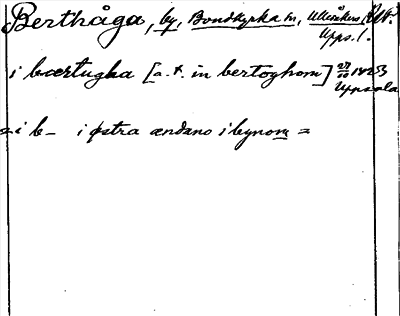 Berthåga, by, Bondkyrka sn, Ulleråkers
Upps. l.
i bærtugha [a. t. in bertoghom] 1423
Uppsala
= i b– i østra ændano i bynom =